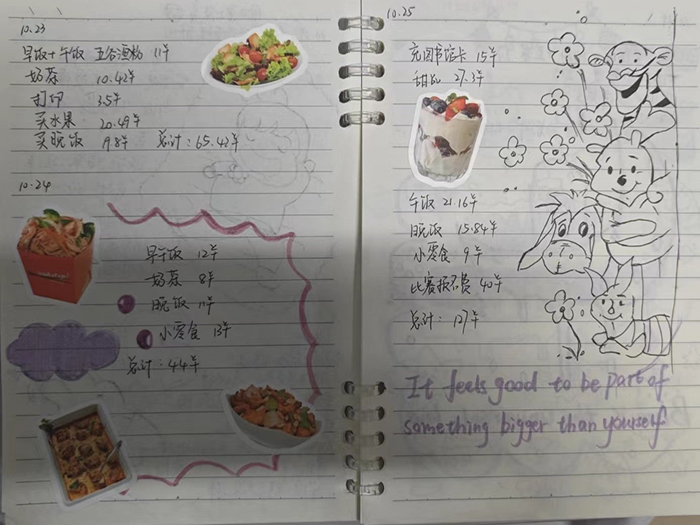 10.23
早饭+午饭 五谷渔粉 11¥
奶茶 10.42¥
打印 3.5¥
买水果 20.49¥
买晚饭 19.8¥ 总计:65.42¥
10.24
早午饭 12¥
奶茶 8¥
晚饭 11¥
小零食 13¥
总计:44¥
10.25
充图书馆卡 15¥
甜品 27.3¥
午饭 21.16¥
晚饭 15.84¥
小零食 9¥
比赛报名费 40¥
总计:127¥
It feels good to be part of
something bigger than yourself